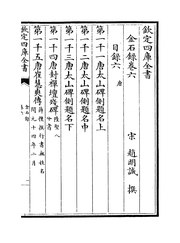 欽定四庫全書
金石錄卷六
宋 趙明誠 撰
目錄六 唐
第一千一唐太山碑側題名上
第一千二唐太山碑側題名中
第一千三唐太山碑側題名下
第一千四唐封禪壇殘碑
第一千五唐崔
撰行書無姓名
開元十四年二月
欽定四庫全書
金石錄